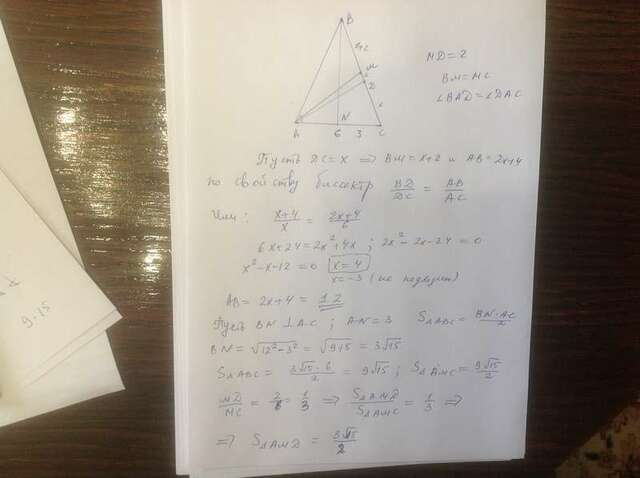 B
4 MD = 2
M BM = MC
D ∠BAD = ∠DAC
A N
6 3 C
Пусть DC = x ⇒ BM = x+2 и AB = 2x+4
по свойству биссектр BD/DC = AB/AC
Или: x+4/x = 2x+4/6
6x+24 = 2x²+4x ; 2x²-2x-24 = 0
x²-x-12 = 0 x = 4
x = -3 (не подходит)
AB = 2x+4 = 12
Пусть BN ⊥ AC ; AN = 3 S△ABC = BN·AC/2
BN = √12²-3² = √9·15 = 3√15
S△ABC = 3√15·6/2 = 9√15 ; S△AMC = 9√15/2
MD/MC = 2/6 = 1/3 ⇒ S△AMD/S△AMC = 1/3 ⇒
⇒ S△AMD = 3√15/2
9·15